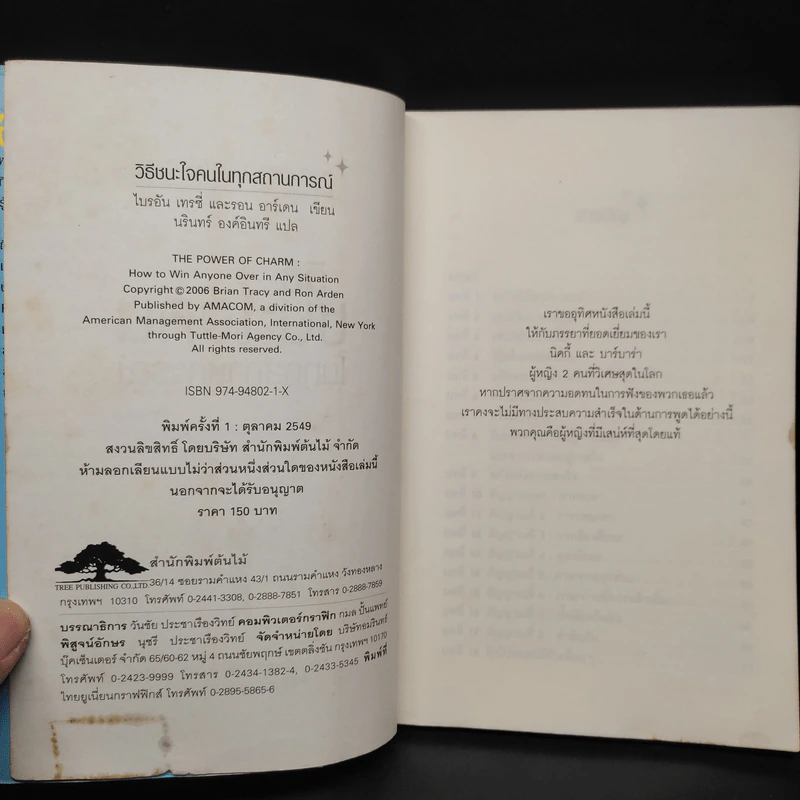 วิธีชนะใจคนในทุกสถานการณ์
ไบรอัน เทรซี่ และรอน อาร์เดน เขียน
นรินทร์ องค์อินทรี แปล
THE POWER OF CHARM :
How to Win Anyone Over in Any Situation
Copyright © 2006 Brian Tracy and Ron Arden
Published by AMACOM, a division of the
American Management Association, International, New York
through Tuttle-Mori Agency Co., Ltd.
All rights reserved.
ISBN 974-94802-1-X
พิมพ์ครั้งที่ 1 : ตุลาคม 2549
สงวนลิขสิทธิ์ โดยบริษัท สำนักพิมพ์ต้นไม้ จำกัด
ห้ามลอกเลียนแบบไม่ว่าส่วนหนึ่งส่วนใดของหนังสือเล่มนี้
นอกจากจะได้รับอนุญาต
ราคา 150 บาท
สำนักพิมพ์ต้นไม้
TREE PUBLISHING CO.,LTD.
36/14 ซอยรามคำแหง 43/1 ถนนรามคำแหง วังทองหลาง
กรุงเทพฯ 10310 โทรศัพท์ 0-2441-3308, 0-2888-7851 โทรสาร 0-2888-7859
บรรณาธิการ วันชัย ประชาเรืองวิทย์ คอมพิวเตอร์กราฟิก กมล ปั้นแพทย์
พิสูจน์อักษร นุชรี ประชาเรืองวิทย์ จัดจำหน่ายโดย บริษัทอมรินทร์
บุ๊คเซ็นเตอร์ จำกัด 65/60-62 หมู่ 4 ถนนชัยพฤกษ์ เขตตลิ่งชัน กรุงเทพฯ 10170
โทรศัพท์ 0-2423-9999 โทรสาร 0-2434-1382-4, 0-2433-5345 พิมพ์ที่
ไทยยูเนี่ยนกราฟฟิกส์ โทรศัพท์ 0-2895-5865-6
เราขออุทิศหนังสือเล่มนี้
ให้กับภรรยาที่ยอดเยี่ยมของเรา
นิคกี้ และ บาร์บาร่า
ผู้หญิง 2 คนที่วิเศษสุดในโลก
หากปราศจากความอดทนในการฟังของพวกเธอแล้ว
เราคงจะไม่มีทางประสบความสำเร็จในด้านการพูดได้อย่างนี้
พวกคุณคือผู้หญิงที่มีเสน่ห์ที่สุดโดยแท้